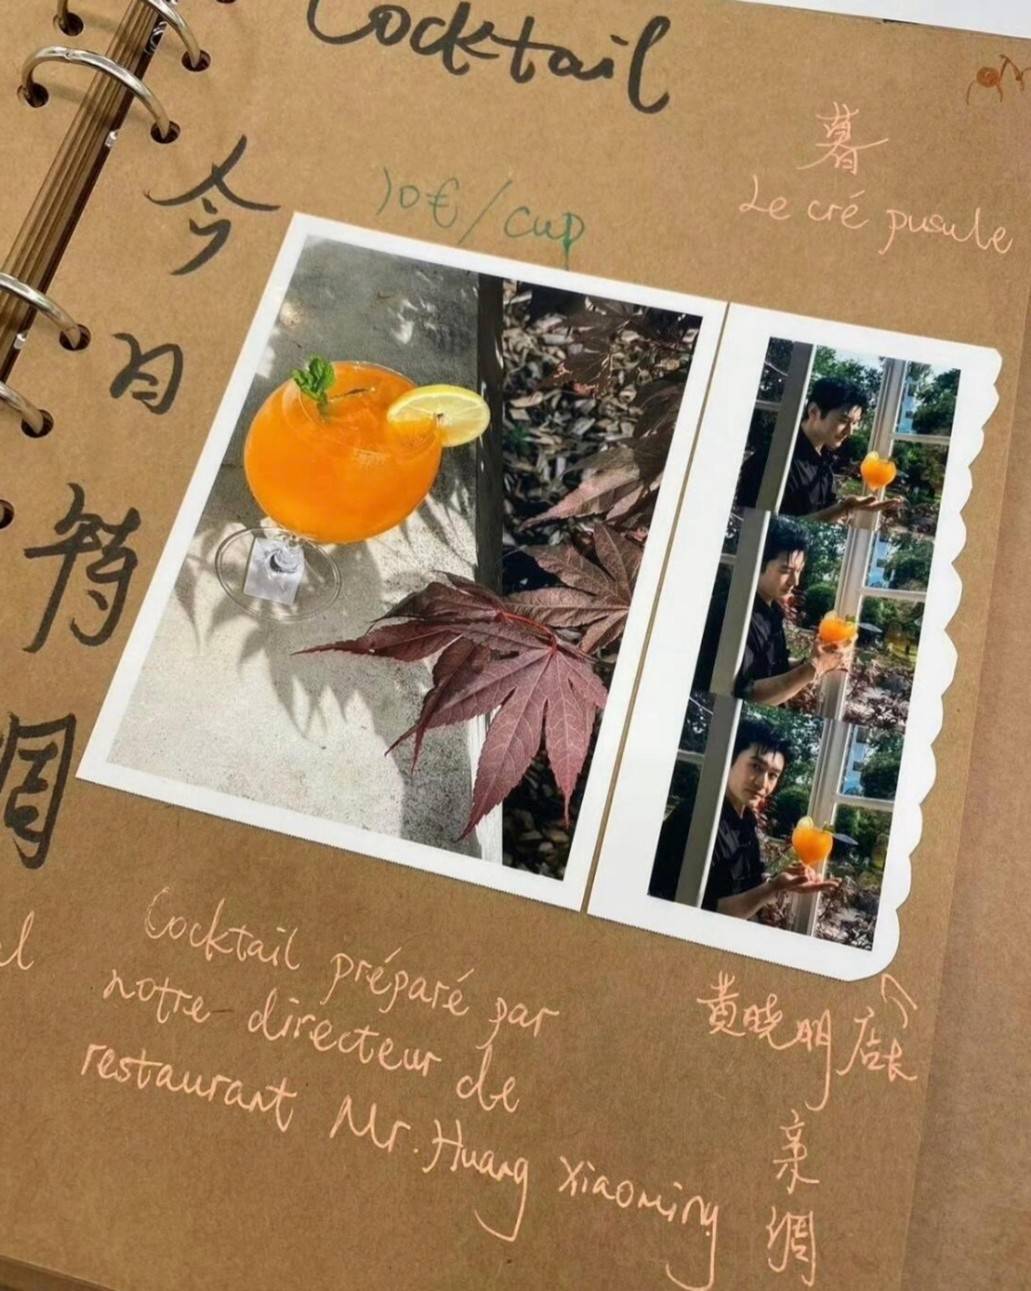 Cocktail
今日特调
10€/cup
暮
Le cré pusule
Cocktail préparé par
notre directeur de
restaurant Mr. Huang Xiaoming
黄晓明店长
亲调